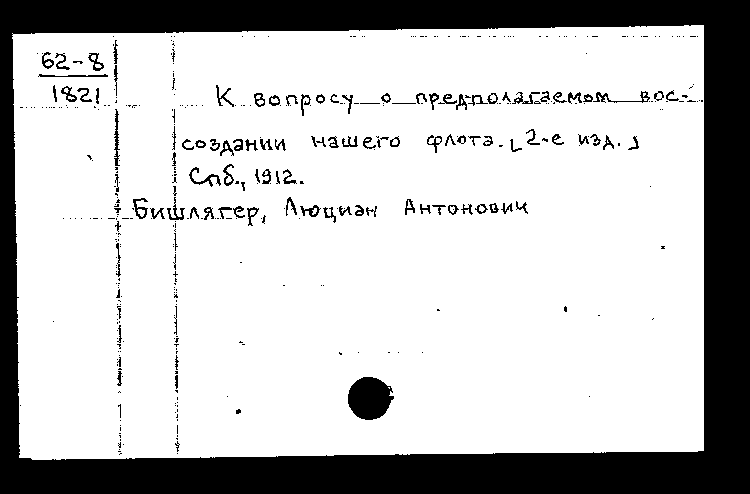 62-8
1821
К вопросу о предполагаемом вос-
создании нашего флота. [2-е изд.]
Спб., 1912.
Бишлягер, Люциан Антонович